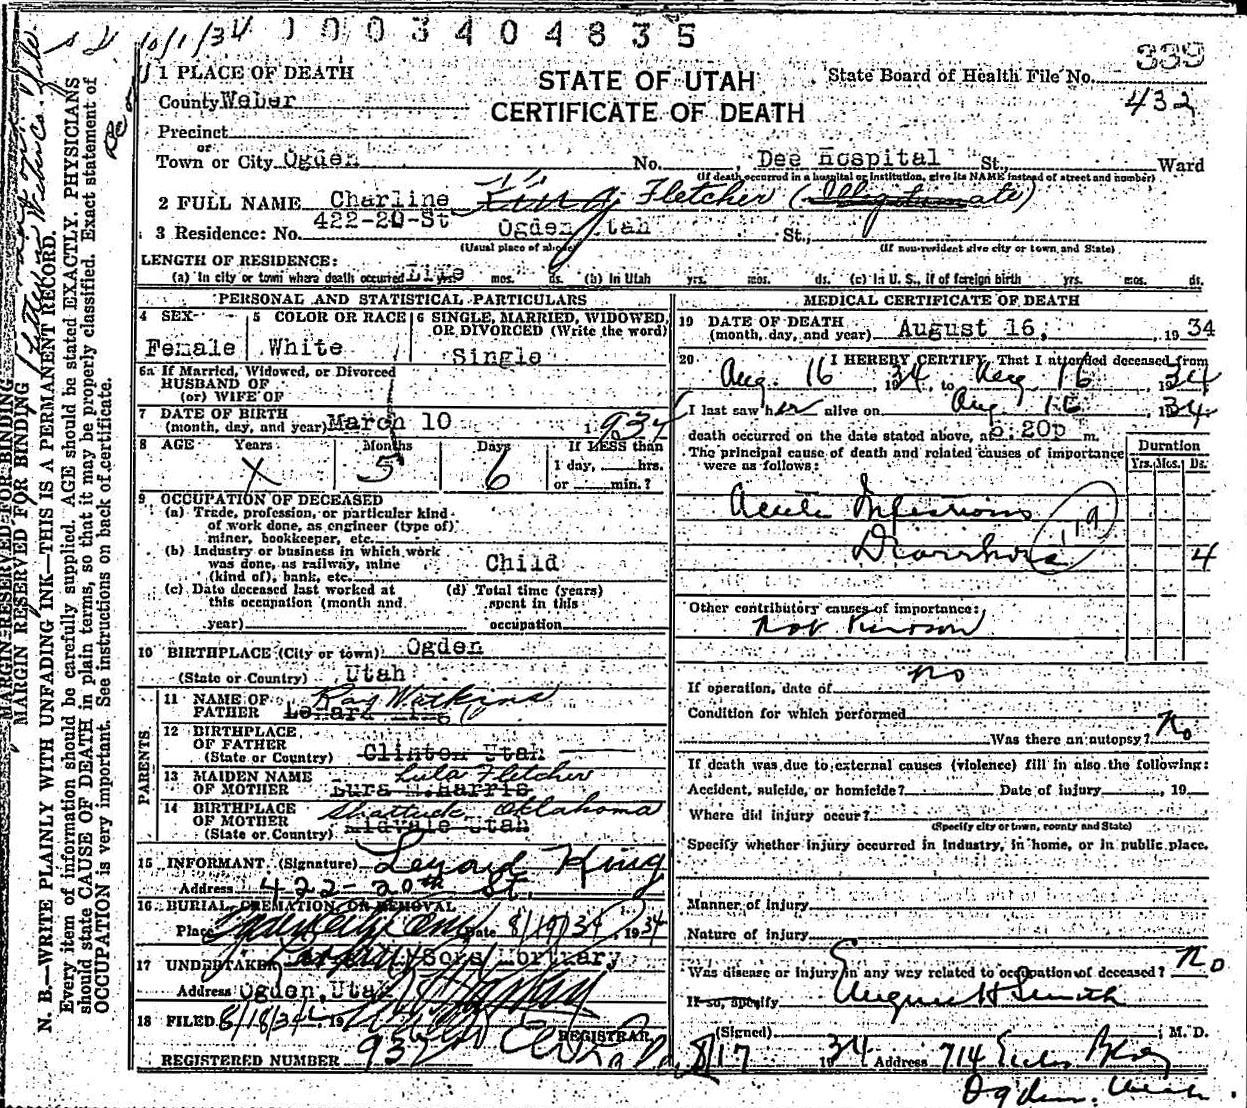 10/1/34 1003404835
339
1 PLACE OF DEATH
STATE OF UTAH
State Board of Health File No.
County Weber
CERTIFICATE OF DEATH
432
Precinct
or
Town or City Ogden No. Dee Hospital St., Ward
(If death occurred in a hospital or institution, give its NAME instead of street and number)
2 FULL NAME Charline King Fletcher (Illegitimate)
3 Residence: No. 422-20-St Ogden Utah St.,
(Usual place of abode) (If non-resident give city or town, and State)
LENGTH OF RESIDENCE:
(a) In city or town where death occurred Life yrs. mos. ds. (b) In Utah yrs. mos. ds. (c) In U. S., if of foreign birth yrs. mos. ds.
PERSONAL AND STATISTICAL PARTICULARS
4 SEX 5 COLOR OR RACE 6 SINGLE, MARRIED, WIDOWED, OR DIVORCED (Write the word)
Female White Single
6a If Married, Widowed, or Divorced
HUSBAND OF
(or) WIFE OF
7 DATE OF BIRTH
(month, day, and year) March 10 1934
8 AGE Years Months Days If LESS than
X 5 6 1 day, hrs.
or min.?
9 OCCUPATION OF DECEASED
(a) Trade, profession, or particular kind
of work done, as engineer (type of)
miner, bookkeeper, etc.
(b) Industry or business in which work
was done, as railway, mine
(kind of), bank, etc. Child
(c) Date deceased last worked at
this occupation (month and
year)
(d) Total time (years)
spent in this
occupation
10 BIRTHPLACE (City or town) Ogden
(State or Country) Utah
PARENTS
11 NAME OF
FATHER
Ray Watkins
Lenard King
12 BIRTHPLACE
OF FATHER
(State or Country) Clinton Utah
13 MAIDEN NAME
OF MOTHER
Lula Fletcher
Lura M. Harris
14 BIRTHPLACE
OF MOTHER
(State or Country)
Shattuck, Oklahoma
Midvale Utah
15 INFORMANT (Signature) Lenard King
Address 422-20th St.
16 BURIAL, CREMATION, OR REMOVAL
Place Ogden City Cem Date 8/19/34, 1934
17 UNDERTAKER Larkin / Sons Mortuary
Address Ogden, Utah
18 FILED 8/18/34, 19
REGISTRAR
REGISTERED NUMBER 932
MEDICAL CERTIFICATE OF DEATH
19 DATE OF DEATH
(month, day, and year) August 16, 1934
20 I HEREBY CERTIFY, That I attended deceased from
Aug. 16, 1934, to Aug 16, 1934
I last saw her alive on Aug 16, 1934
death occurred on the date stated above, at 5:20p m.
The principal cause of death and related causes of importance
were as follows:
Duration
Yrs. Mos. Ds.
Acute Infectious
Diarrhoea 119 4
Other contributory causes of importance:
Not Known
If operation, date of no
Condition for which performed
Was there an autopsy? No
If death was due to external causes (violence) fill in also the following:
Accident, suicide, or homicide? Date of injury, 19
Where did injury occur?
(Specify city or town, county and State)
Specify whether injury occurred in industry, in home, or in public place.
Manner of injury
Nature of injury
Was disease or injury in any way related to occupation of deceased? No
If so, specify
(Signed) Eugene H Smith, M. D.
8/17 1934 Address 714 Eccles Bldg
Ogden, Utah.
MARGIN RESERVED FOR BINDING
MARGIN RESERVED FOR BINDING
N. B.—WRITE PLAINLY WITH UNFADING INK—THIS IS A PERMANENT RECORD.
Every item of information should be carefully supplied. AGE should be stated EXACTLY. PHYSICIANS
should state CAUSE OF DEATH in plain terms, so that it may be properly classified. Exact statement of
OCCUPATION is very important. See instructions on back of certificate.